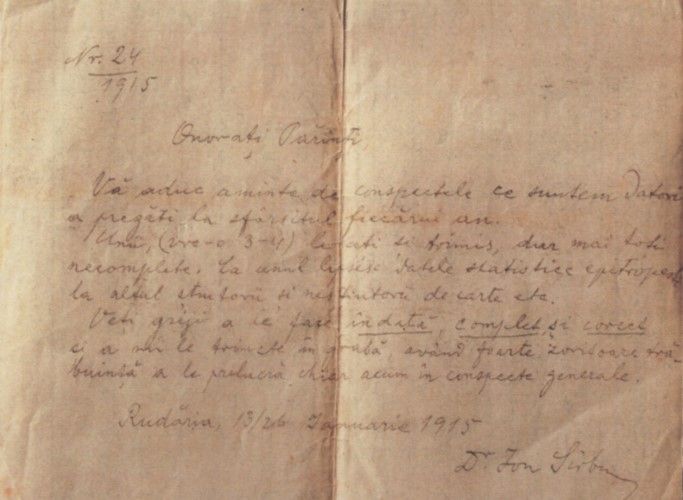 Nr. 24
1915
Onorați Părinți
Vă aduc aminte de conspectele ce suntem datori
a pregăti la sfârșitul fiecărui an.
Unii, (vre-o 3-4) le-ați și trimis, dar mai toți
necomplete. La unul lipsesc datele statistice
la altul știutorii și neștiutorii de carte etc.
Veți griji a le face îndată, complet și corect
și a mi le trimete în grabă, având foarte zoritoare tră-
buință a le prelucră chiar acum în conspecte generale.
Rudăria, 13/26 Ianuarie 1915
Dr. Ion Sîrbu